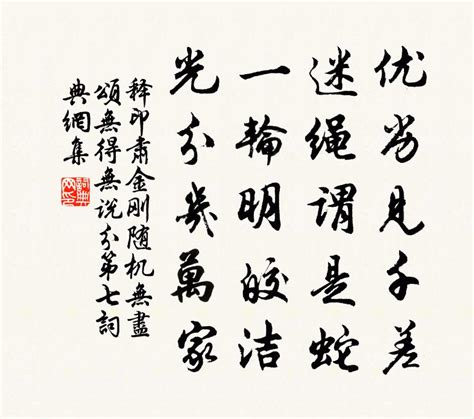 优劣见千差
迷绳谓是蛇
一轮明皎洁
光分几万家
释印肃金刚随机無盡
頌無得無说分第七詞
典網集